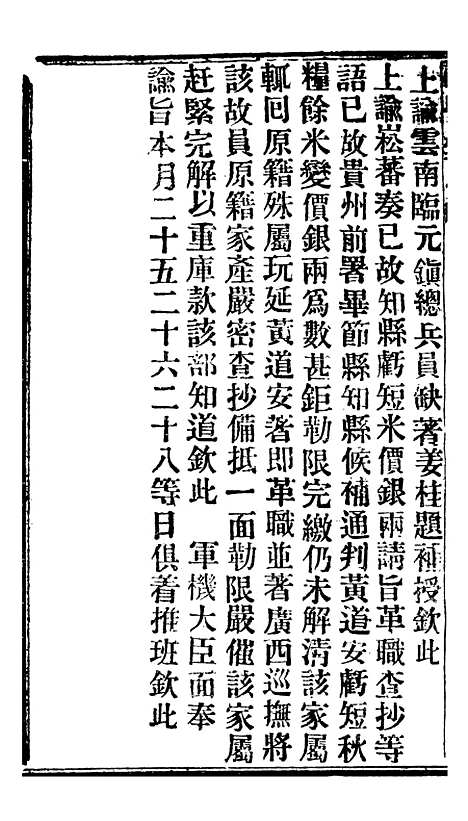 上諭雲南臨元鎭總兵員缺著姜桂題補授欽此
上諭崧蕃奏已故知縣虧短米價銀兩請旨革職查抄等
語已故貴州前署畢節縣知縣候補通判黃道安虧短秋
糧餘米變價銀兩爲數甚鉅勒限完繳仍未解清該家屬
輒囘原籍殊屬玩延黃道安著即革職並著廣西巡撫將
該故員原籍家產嚴密查抄備抵一面勒限嚴催該家屬
赶緊完解以重庫款該部知道欽此　軍機大臣面奉
諭旨本月二十五二十六二十八等日俱着推班欽此